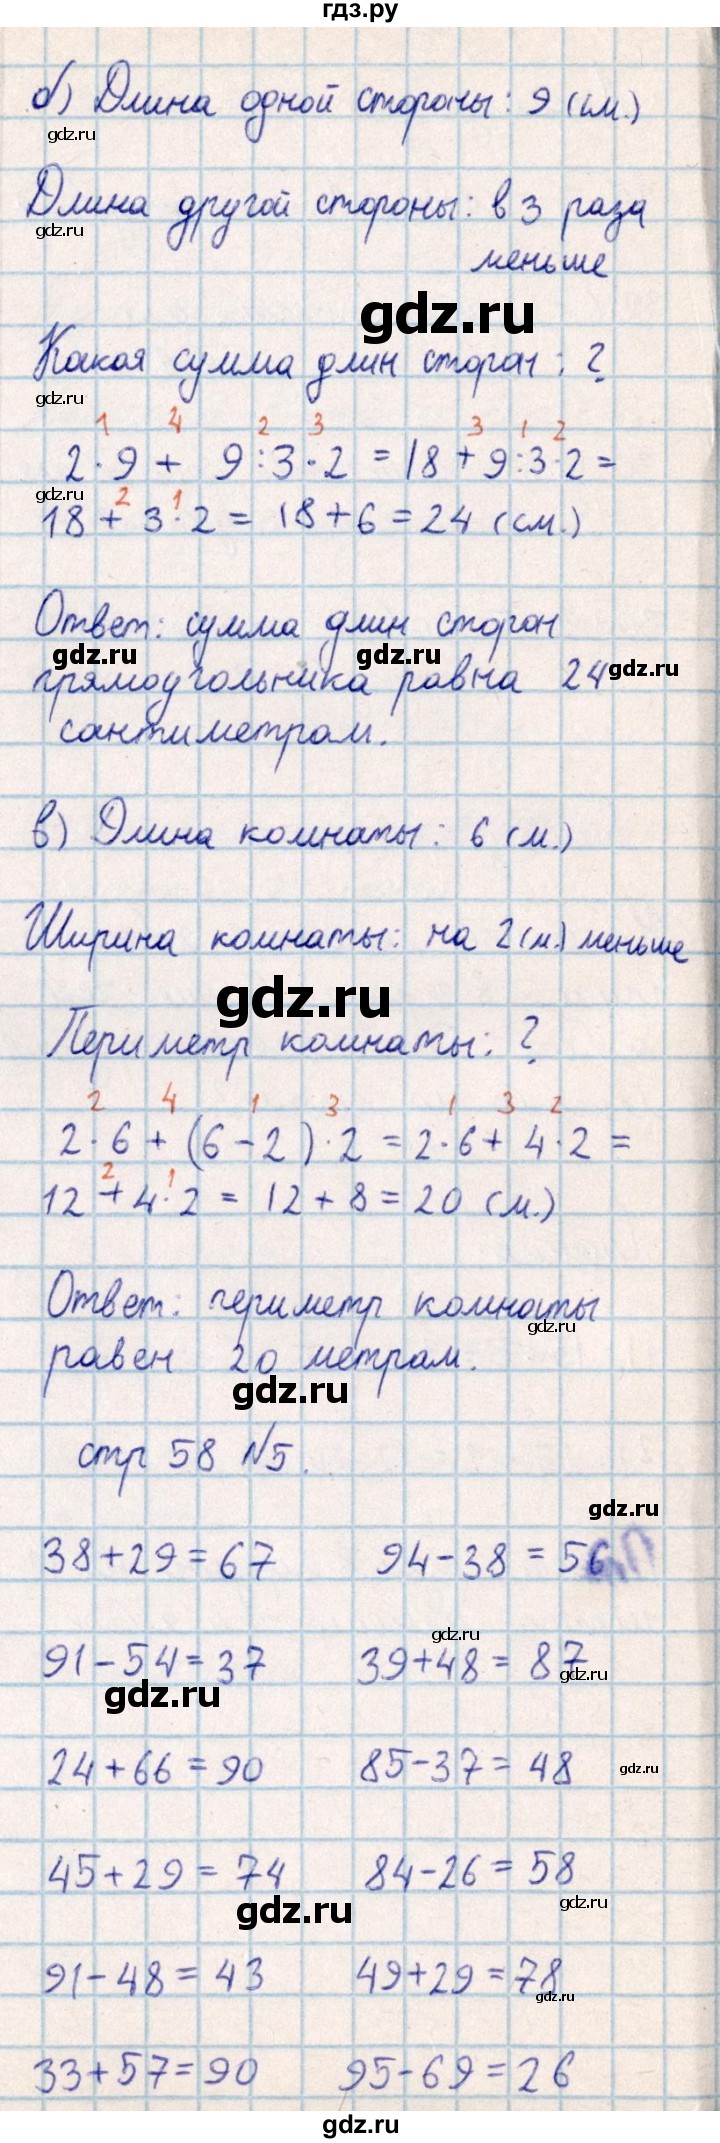 гдз.ру
б) Длина одной стороны: 9 (см.)
gdz.ru
Длина другой стороны: в 3 раза
gdz.ru
меньше
gdz.ru
Какая сумма длин сторон: ?
gdz.ru
1 4 2 3 3 1 2
2·9 + 9:3·2 = 18+9:3·2=
gdz.ru
2 1
18+3·2 = 18+6=24 (см.)
Ответ: сумма длин сторон
gdz.ru gdz.ru gdz.ru
прямоугольника равна 24
сантиметрам.
в) Длина комнаты: 6 (м.)
Ширина комнаты: на 2 (м.) меньше
gdz.ru
Периметр комнаты: ?
2 4 1 3 1 3 2
2·6+(6-2)·2=2·6+4·2=
2 1
12+4·2=12+8=20 (м.)
Ответ: периметр комнаты
gdz.ru
равен 20 метрам.
gdz.ru
стр 58 №5.
gdz.ru
38+29=67 94-38=56
gdz.ru
91-54=37 39+48=87
gdz.ru gdz.ru
24+66=90 85-37=48
gdz.ru
45+29=74 84-26=58
gdz.ru gdz.ru
91-48=43 49+29=78
gdz.ru
33+57=90 95-69=26
gdz.ru